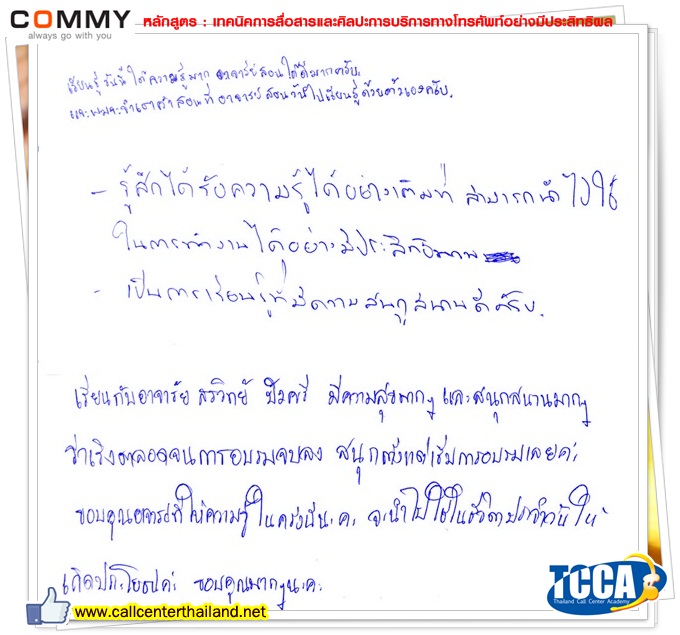 COMMY
always go with you
หลักสูตร : เทคนิคการสื่อสารและศิลปะการบริการทางโทรศัพท์อย่างมีประสิทธิผล
เรียนรู้วันนี้ ได้ความรู้มาก อาจารย์สอนได้ดีมากครับ.
และผมจะจำเอาคำสอนที่อาจารย์สอนวันนี้ไปเรียนรู้ด้วยตัวเองครับ.
- รู้สึกได้รับความรู้ได้อย่างเต็มที่ สามารถนำไปใช้
ในการทำงานได้อย่างมีประสิทธิภาพ
- เป็นการเรียนรู้ที่มีความสนุกสนานดีครับ.
เรียนกับอาจารย์ สรวิทย์ มีความสุขมากๆ และสนุกสนานมากๆ
ร่าเริงตลอดจนการอบรมจบลง สนุกตั้งแต่เริ่มการอบรมเลยค่ะ
ขอบคุณอาจารย์ที่ให้ความรู้ในครั้งนี้นะคะ จะนำไปใช้ในชีวิตประจำวันให้
เกิดประโยชน์ค่ะ ขอบคุณมากๆนะคะ
TCCA
Thailand Call Center Academy
www.callcenterthailand.net